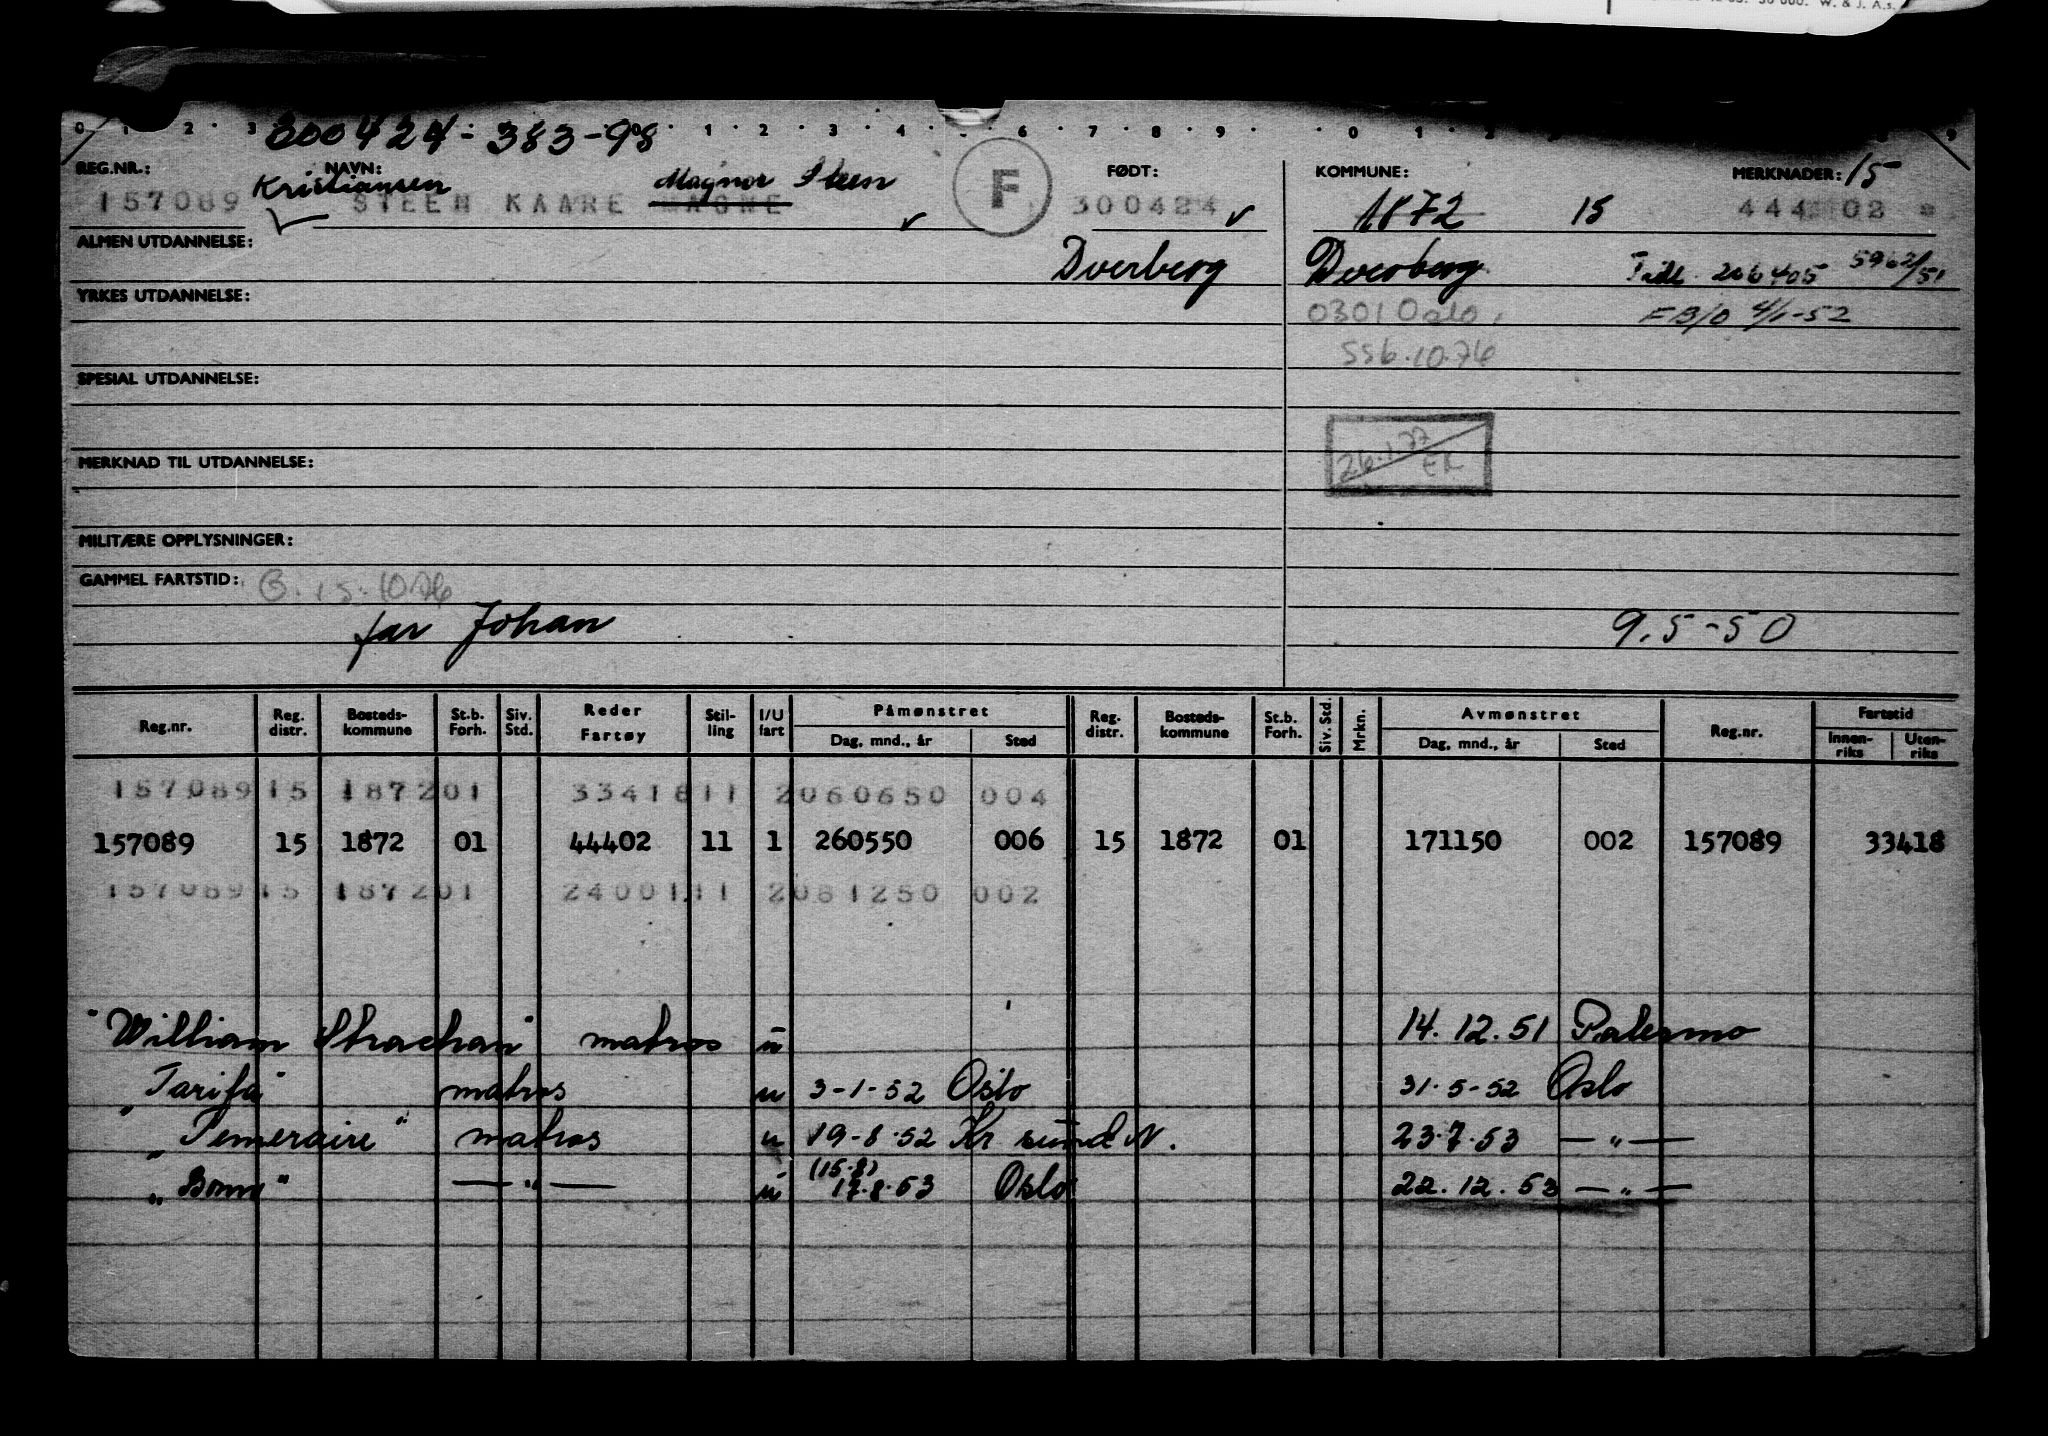 50 000. W. & J. A.s.
0 1 2 3 1 2 3 4 6 7 8 9 0 1 2 9
300424-383-98
REG.NR.: NAVN: FØDT: KOMMUNE: MERKNADER: 15
Kristiansen Magnor Steen
157089 STEEN KAARE MAGNE F 300424 1872 15 444 02
ALMEN UTDANNELSE:
Dverberg Dverberg Tidl. 206405 5962/51
YRKES UTDANNELSE:
0301 Oslo FB/O 4/1-52
SSB.10.76
SPESIAL UTDANNELSE:
26.1.77
MERKNAD TIL UTDANNELSE:
MILITÆRE OPPLYSNINGER:
GAMMEL FARTSTID: 15.10.76
far Johan 9.5-50
Reg.nr. Reg. distr. Bosteds-kommune St.b. Forh. Siv. Std. Reder Fartøy Stil-ling I/U fart Påmønstret Dag, mnd., år Sted Reg. distr. Bosteds-kommune St.b. Forh. Siv. Std. Mrkn. Avmønstret Dag, mnd., år Sted Reg.nr. Fartstid Innen-riks Uten-riks
157089 15 1872 01 33418 11 2 060650 004
157089 15 1872 01 44402 11 1 260550 006 15 1872 01 171150 002 157089 33418
157089 15 1872 01 24001 11 2 081250 002
"William Strachan" matros u 14.12.51 Palermo
"Tarifa" matros u 3-1-52 Oslo 31.5-52 Oslo
"Temeraire" matros u 19-8.52 Kr sund N. 23.7.53 — " —
(15.8)
"Boma" — " — u 17.8.53 Oslo 22.12.53 — " —